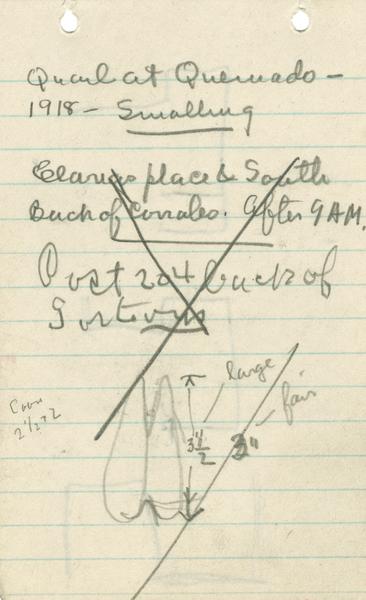 Quail at Quemado -
1918 - Smalling
place & South
Back of Corrales. After 9 A.M.
Post 204 back of
large
fair
3 1/2
3"
2 1/2 x 2